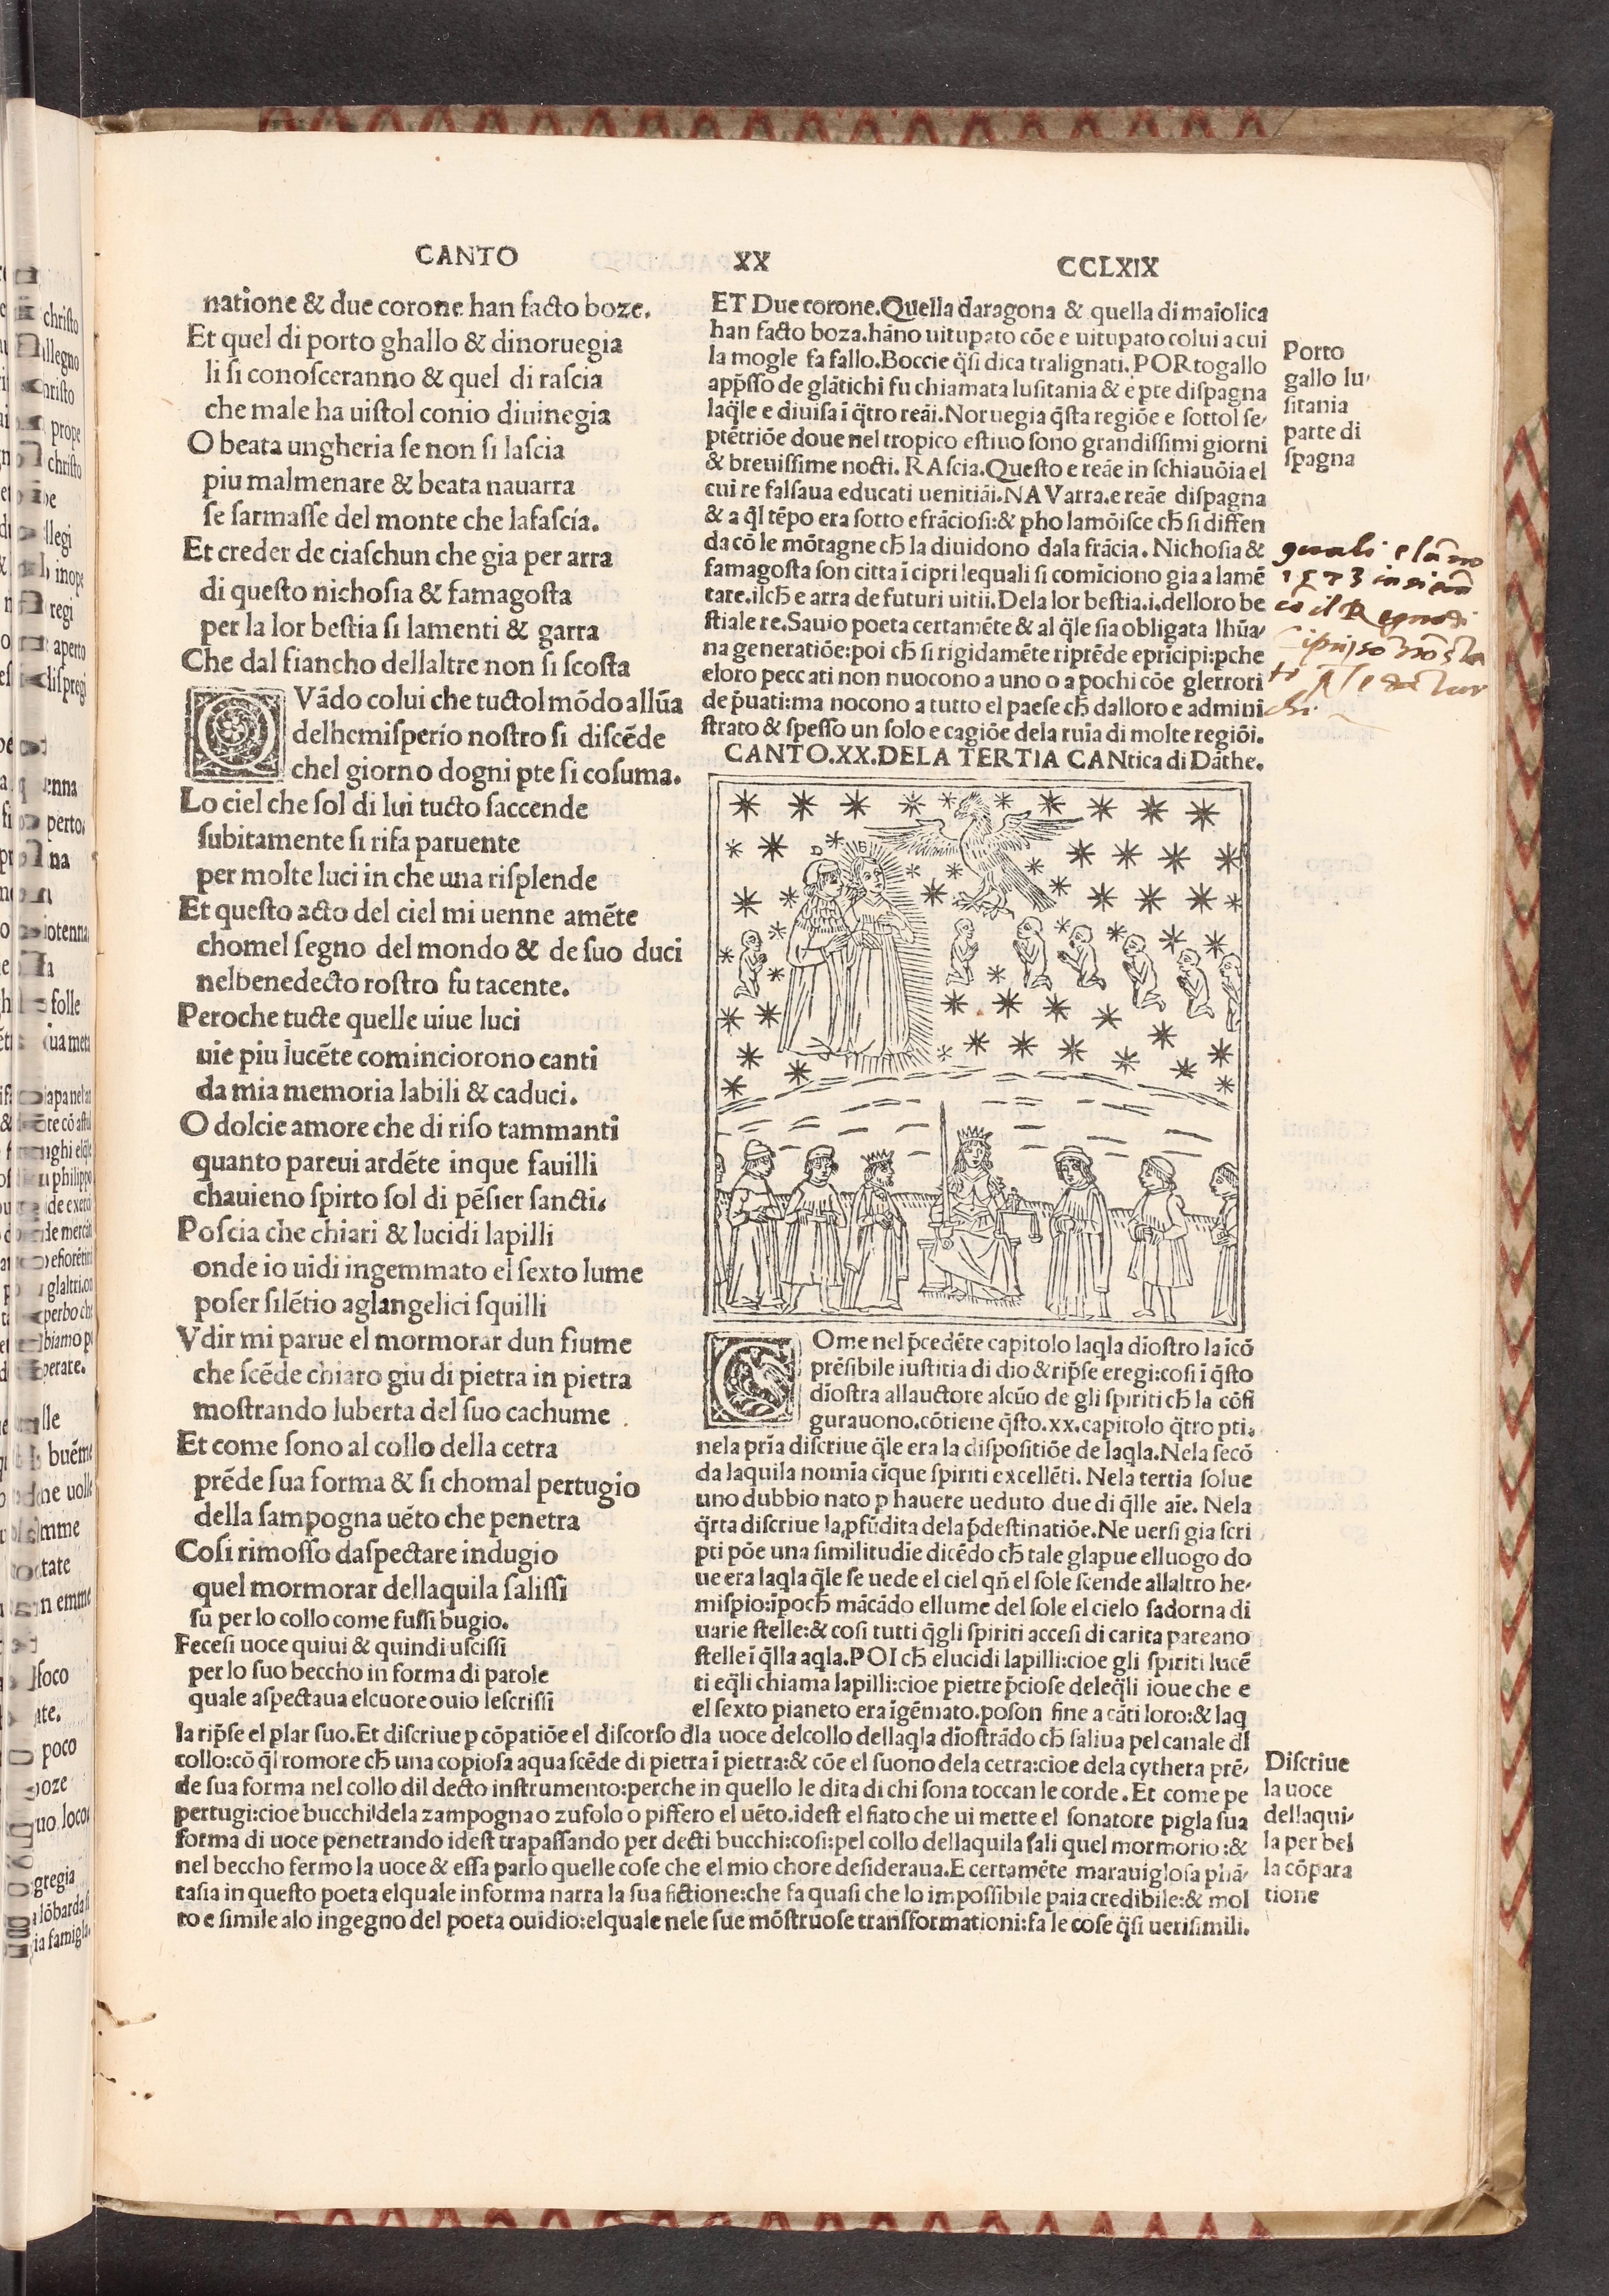 CANTO XX CCLXIX
natione & due corone han facto boze.
Et quel di porto ghallo & dinoruegia
li si conosceranno & quel di rascia
che male ha uistol conio diuinegia
O beata ungheria se non si lascia
piu malmenare & beata nauarra
se sarmasse del monte che lafascía.
Et creder de ciaschun che gia per arra
di questo nichosia & famagosta
per la lor bestia si lamenti & garra
Che dal fiancho dellaltre non si scosta
Vādo colui che tuctol mōdo allūa
delhemisperío nostro si discēde
chel giorno dogni pte si cosuma.
Lo ciel che sol di lui tucto saccende
subitamente si rifa paruente
per molte luci in che una risplende
Et questo acto del ciel mi uenne amēte
chomel segno del mondo & de suo duci
nelbenedecto rostro fu tacente.
Peroche tucte quelle uiue luci
uie piu lucēte cominciorono canti
da mia memoria labili & caduci.
O dolcie amore che di riso tammanti
quanto pareui ardēte inque fauilli
chauieno spirto sol di pēsier sancti.
Poscia che chiari & lucidi lapilli
onde io uidi ingemmato el sexto lume
poser silētio aglangelici squilli
Vdir mi parue el mormorar dun fiume
che scēde chiaro giu di pietra in pietra
mostrando luberta del suo cachume
Et come sono al collo della cetra
prēde sua forma & si chomal pertugio
della sampogna uēto che penetra
Cosi rimosso daspectare indugio
quel mormorar dellaquila salissi
su per lo collo come fussi bugio.
Fecesi uoce quiui & quindi uscissi
per lo suo beccho in forma di parole
quale aspectaua elcuore ouio lescrissi
ET Due corone.Quella daragona & quella di maiolica
han facto boza.hāno uitupato cōe e uitupato colui a cui
la mogle fa fallo.Boccie q̄si dica tralignati.PORtogallo
app̄sso de glātichi fu chiamata lusitania & e pte dispagna
laq̄le e diuisa ī q̄tro reāi.Noruegia q̄sta regiōe e sottol se-
ptētriōe doue nel tropico estiuo sono grandissimi giorni
& breuissime nocti. RAscia.Questo e reāe in schiauōia el
cui re falsaua educati uenitiāi.NAVarra.e reāe dispagna
& a q̄l tēpo era sotto efrāciosi:& pho lamōisce ch̄ si diffen
da cō le mōtagne ch̄ la diuidono dala frācia. Nichosia &
famagosta son citta ī cipri lequali si comīciono gia a lamē
tare.ilch̄ e arra de futuri uitii.Dela lor bestia.i.delloro be
stiale re.Sauio poeta certamēte & al q̄le sia obligata lhūa-
na generatiōe:poi ch̄ si rigidamēte riprēde eprīcipi:pche
eloro peccati non nuocono a uno o a pochi cōe glerrori
de p̄uati:ma nocono a tutto el paese ch̄ dalloro e admini
strato & spesso un solo e cagiōe dela ruīa di molte regiōi.
CANTO.XX.DELA TERTIA CANtica di Dāthe.
D B
Ome nel p̄cedēte capitolo laqla dīostro la icō
prēsibile iustitia di dio & rip̄se eregi:cosi ī q̄sto
dīostra allauctore alcūo de gli spiriti ch̄ la cōfi
gurauono.cōtiene q̄sto.xx.capitolo q̄tro pti.
nela prīa discriue q̄le era la dispositiōe de laqla.Nela secō
da laquila nomīa cīque spiriti excellēti. Nela tertia solue
uno dubbio nato p hauere ueduto due di q̄lle aīe. Nela
q̄rta discriue la pfūdita dela p̄destinatiōe.Ne uersi gia scri
pti pōe una similitudīe dicēdo ch̄ tale glapue elluogo do
ue era laqla q̄le se uede el ciel qn̄ el sole scende allaltro he-
mispio:īpoch̄ mācādo ellume del sole el cielo sadorna di
uarie stelle:& cosi tutti q̄gli spiriti accesi di carita pareano
stelle ī q̄lla aqla.POI ch̄ elucidi lapilli:cioe gli spiriti lucē
ti eq̄li chiama lapilli:cioe pietre p̄ciose deleq̄li ioue che e
el sexto pianeto era īgēmato.poson fine a cāti loro:& laq
la rip̄se el plar suo.Et discriue p cōpatiōe el discorso dla uoce delcollo dellaqla dīostrādo ch̄ saliua pel canale dl
collo:cō q̄l romore ch̄ una copiosa aqua scēde di pietra ī pietra:& cōe el suono dela cetra:cioe dela cythera prē-
de sua forma nel collo dil decto instrumento:perche in quello le dita di chi sona toccan le corde. Et come pe
pertugi:cioe bucchi dela zampogna o zufolo o piffero el uēto.idest el fiato che ui mette el sonatore pigla sua
forma di uoce penetrando idest trapassando per decti bucchi:cosi:pel collo dellaquila sali quel mormorio:&
nel beccho fermo la uoce & essa parlo quelle cose che el mio chore desideraua.E certamēte marauiglosa phā-
tasia in questo poeta elquale informa narra la sua fictione:che fa quasi che lo impossibile paia credibile:& mol
to e simile alo ingegno del poeta ouidio:elquale nele sue mōstruose transformationi:fa le cose q̄si uerisimili.
Porto
gallo lu-
sitania
parte di
spagna
quali e lāno
1573 insiem
co il Regno di
Discriue
la uoce
dellaqui-
la per bel
la cōpara
tione